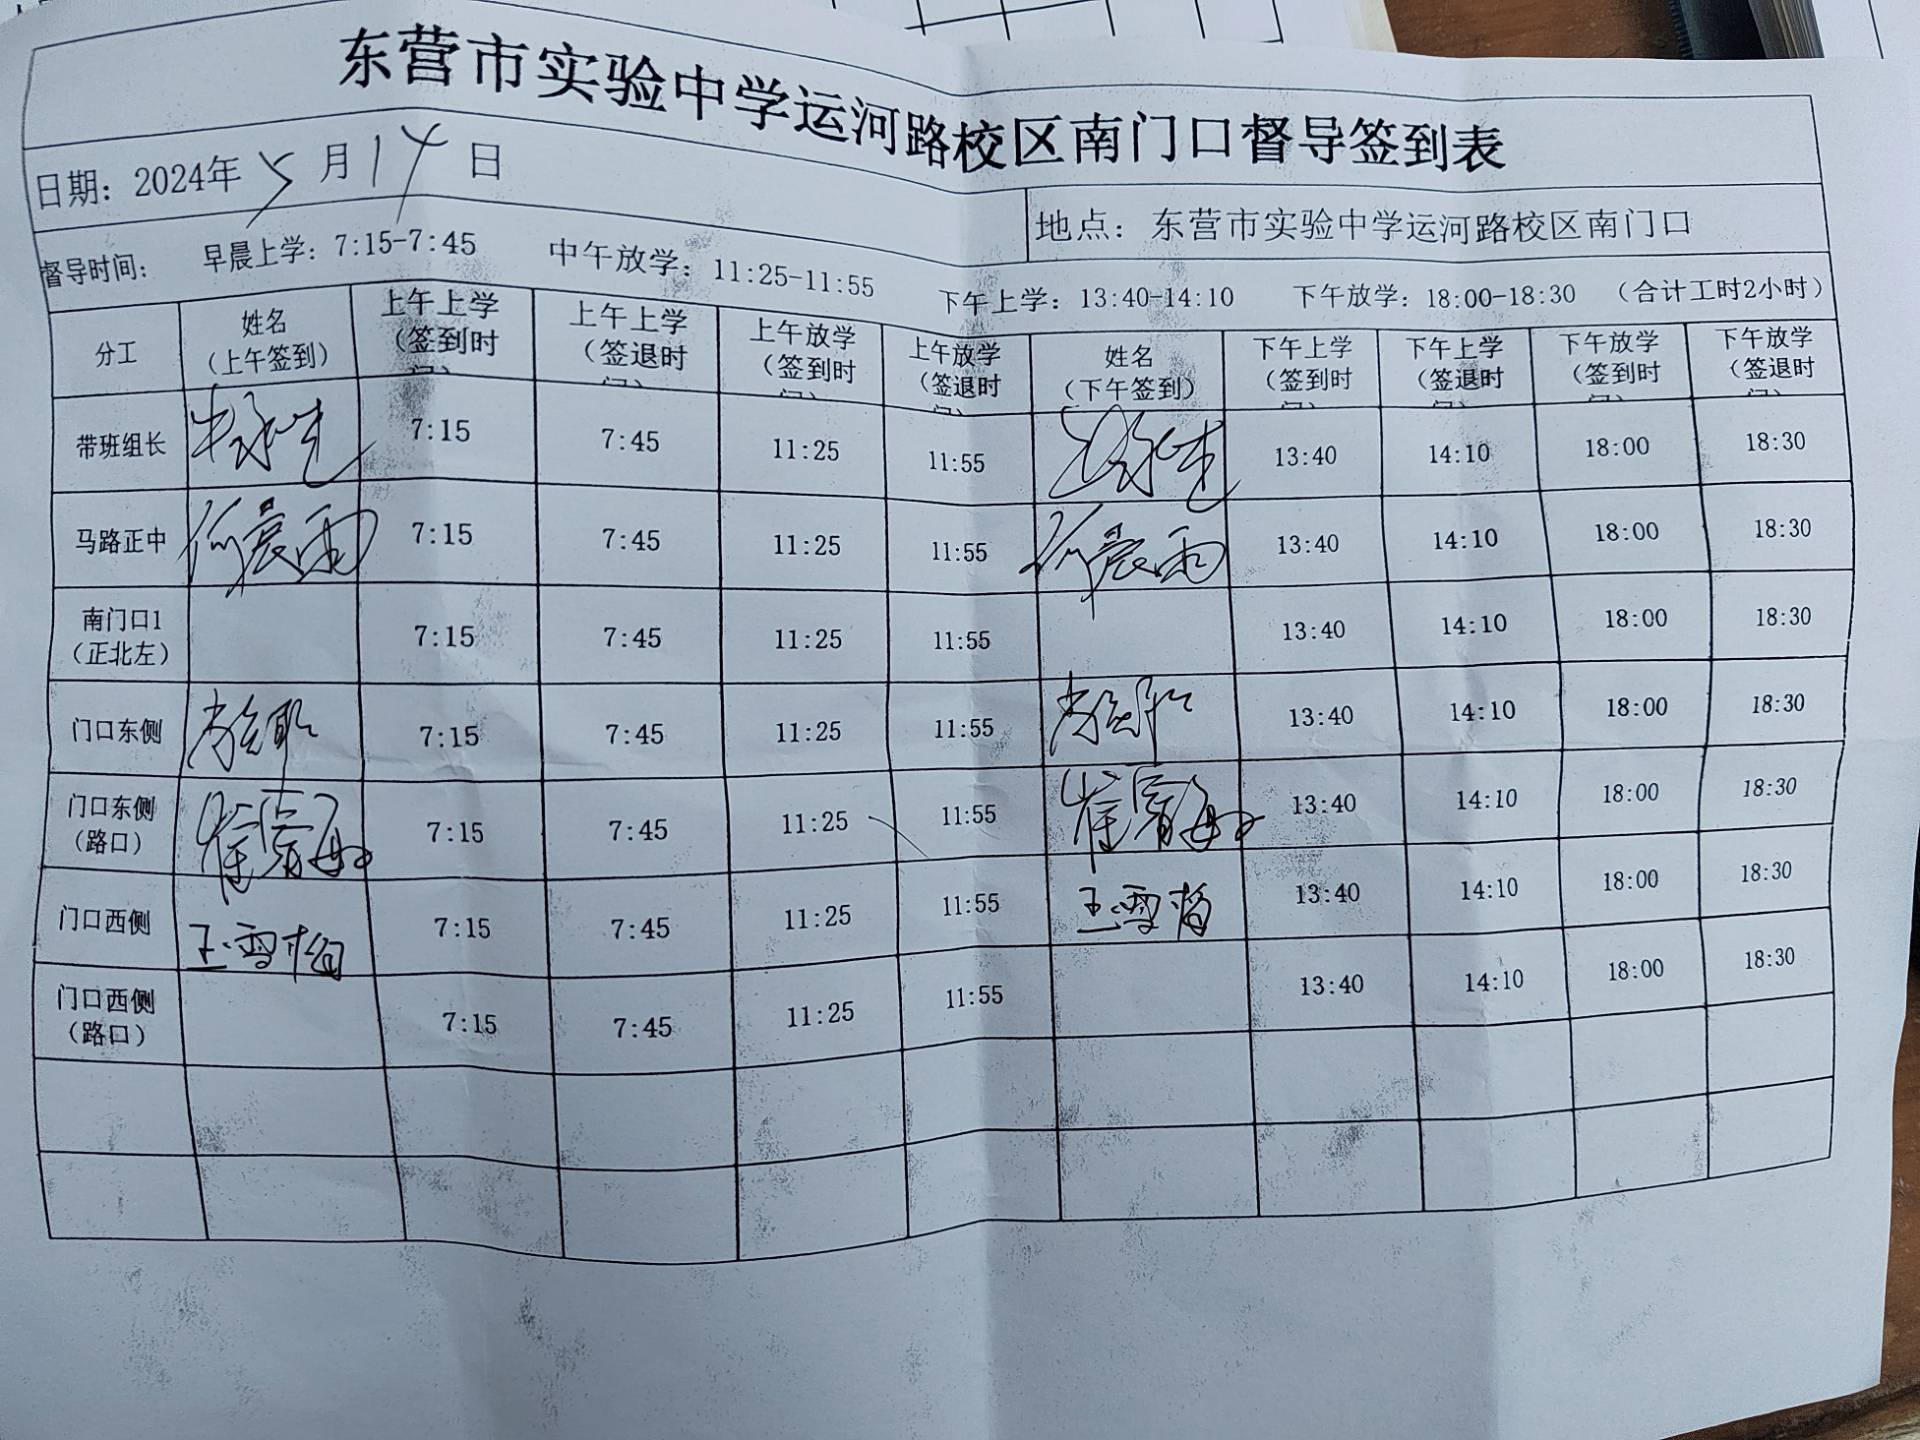 东营市实验中学运河路校区南门口督导签到表
日期：2024年5月14日
地点：东营市实验中学运河路校区南门口
督导时间： 早晨上学：7:15-7:45 中午放学：11:25-11:55 下午上学：13:40-14:10 下午放学：18:00-18:30 （合计工时2小时）
分工 姓名（上午签到） 上午上学（签到时间） 上午上学（签退时间） 上午放学（签到时间） 上午放学（签退时间） 姓名（下午签到） 下午上学（签到时间） 下午上学（签退时间） 下午放学（签到时间） 下午放学（签退时间）
带班组长 7:15 7:45 11:25 11:55 13:40 14:10 18:00 18:30
马路正中 7:15 7:45 11:25 11:55 13:40 14:10 18:00 18:30
南门口1（正北左） 7:15 7:45 11:25 11:55 13:40 14:10 18:00 18:30
门口东侧 7:15 7:45 11:25 11:55 13:40 14:10 18:00 18:30
门口东侧（路口） 7:15 7:45 11:25 11:55 13:40 14:10 18:00 18:30
门口西侧 王雪梅 7:15 7:45 11:25 11:55 王雪梅 13:40 14:10 18:00 18:30
门口西侧（路口） 7:15 7:45 11:25 11:55 13:40 14:10 18:00 18:30